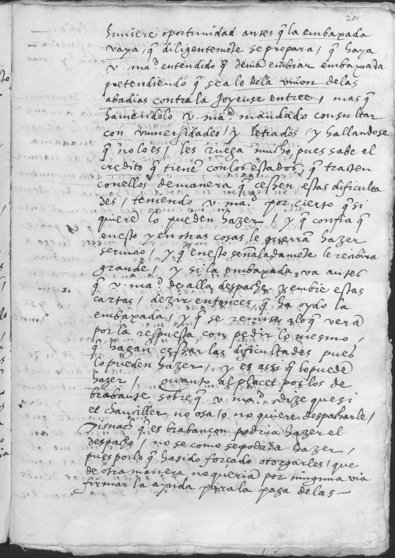 201
huviere oportunidad antes q̃ la embaxada
vaya, q̃ diligentemẽte se prepara, q̃ haya
v. m.d entendido q̃ devia embiar embaxada
pretendiendo q̃ sea lo dela union delas
abadias contra la Joyeuse entree, mas q̃
haviẽdolo v. m.d mandado consultar
con universidades, y letrados, y hallandose
q̃ no lo es, les ruega mucho, pues sabe el
credito q̃ tienẽ con los estados q̃ tratten
conellos de manera q̃ cessen estas dificulta
des, teniendo v. m.d por cierto q̃ si
quierẽ lo pueden hazer, y q̃ confia q̃
enesto y en otras cosas le querrã hazer
servicio, y q̃ enesto señaladamẽte le recibira
grande, y si la embaxada va antes
q̃ v. m.d de alla despache y embie estas
cartas, dezir entonces q̃ ha oydo la
embaxada, y q̃ se remite a lo q̃ verã
por la respuesta, con pedir lo mesmo,
q̃ hagan cessar las dificultades pues
lo pueden hazer, y es assi q̃ lo puedẽ
hazer, quanto al placet por los de
brabante sobre q̃ v. m.d dize que si
el chanciller no osa, o no quiere despacharle,
q̃ es brabançon podria hazer el
despacho, no se como se podria hazer,
pues por lo q̃ ha sido forçado otorgarles, que
de otra manera no querian por ninguna via
firmar la ayuda para la paga de las